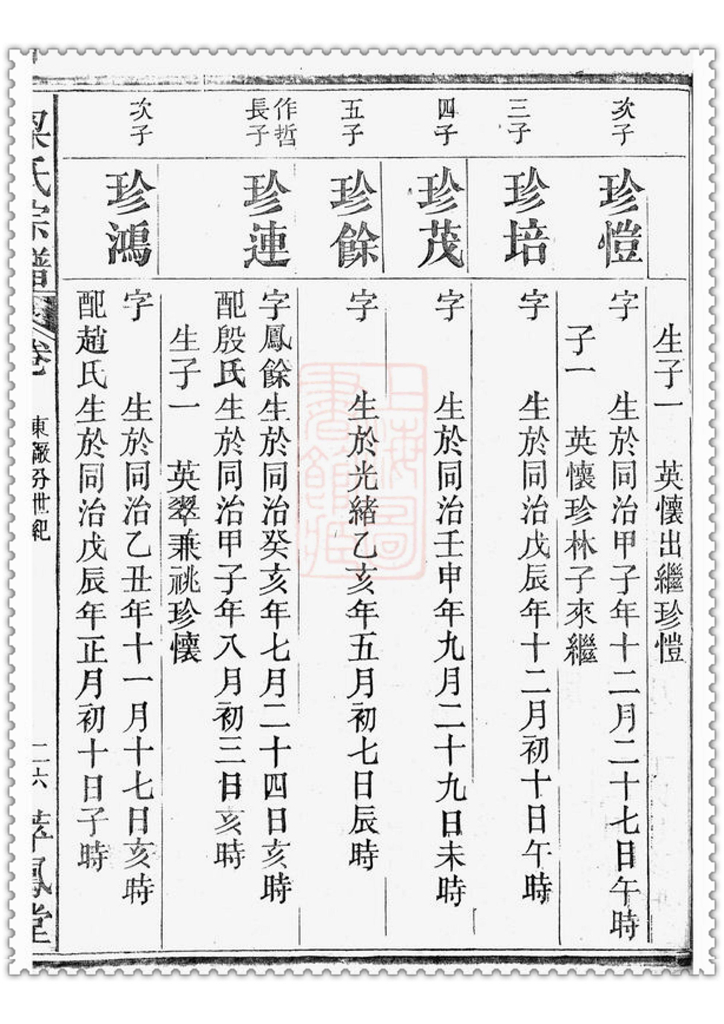 生子一 英懷出繼珍愷
次子
珍愷
字 生於同治甲子年十二月二十七日午時
子一 英懷珍林子來繼
三子
珍培
字 生於同治戊辰年十二月初十日午時
四子
珍茂
字 生於同治壬申年九月二十九日未時
五子
珍餘
字 生於光緒乙亥年五月初七日辰時
作哲
長子
珍連
字鳳餘生於同治癸亥年七月二十四日亥時
配殷氏生於同治甲子年八月初三日亥時
生子一 英翠兼祧珍懷
次子
珍鴻
字 生於同治乙丑年十一月十七日亥時
配趙氏生於同治戊辰年正月初十日子時
氏宗譜
卷
東嚴分世紀
二六
鳳堂
上海圖
書館藏